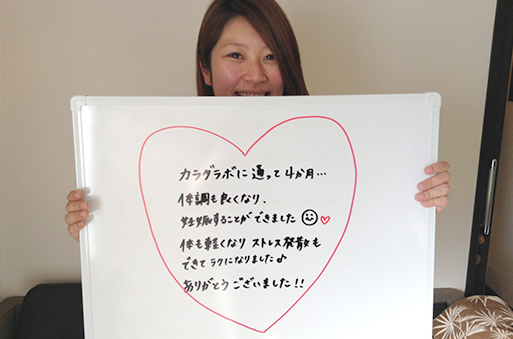 カラダラボに通って4か月…
体調も良くなり、
妊娠することができました
体も軽くなり ストレス発散も
できて ラクになりました♪
ありがとうございました!!